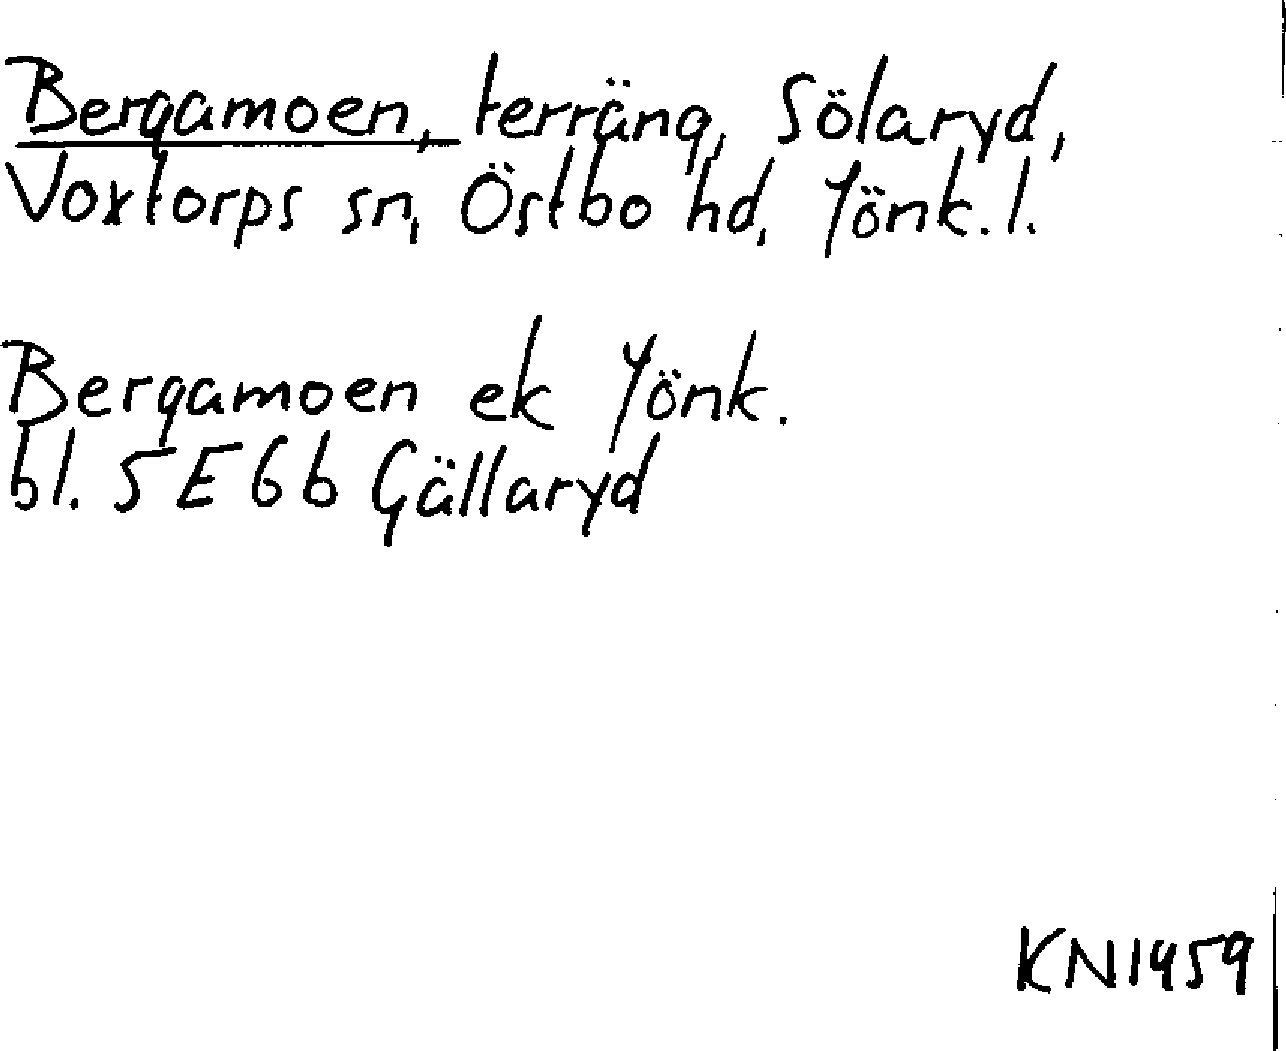 Bergamoen, terräng, Sölaryd,
Voxtorps sn, Östbo hd, Jönk. l.
Bergamoen ek Jönk.
bl. 5E6b Gällaryd
KN1459